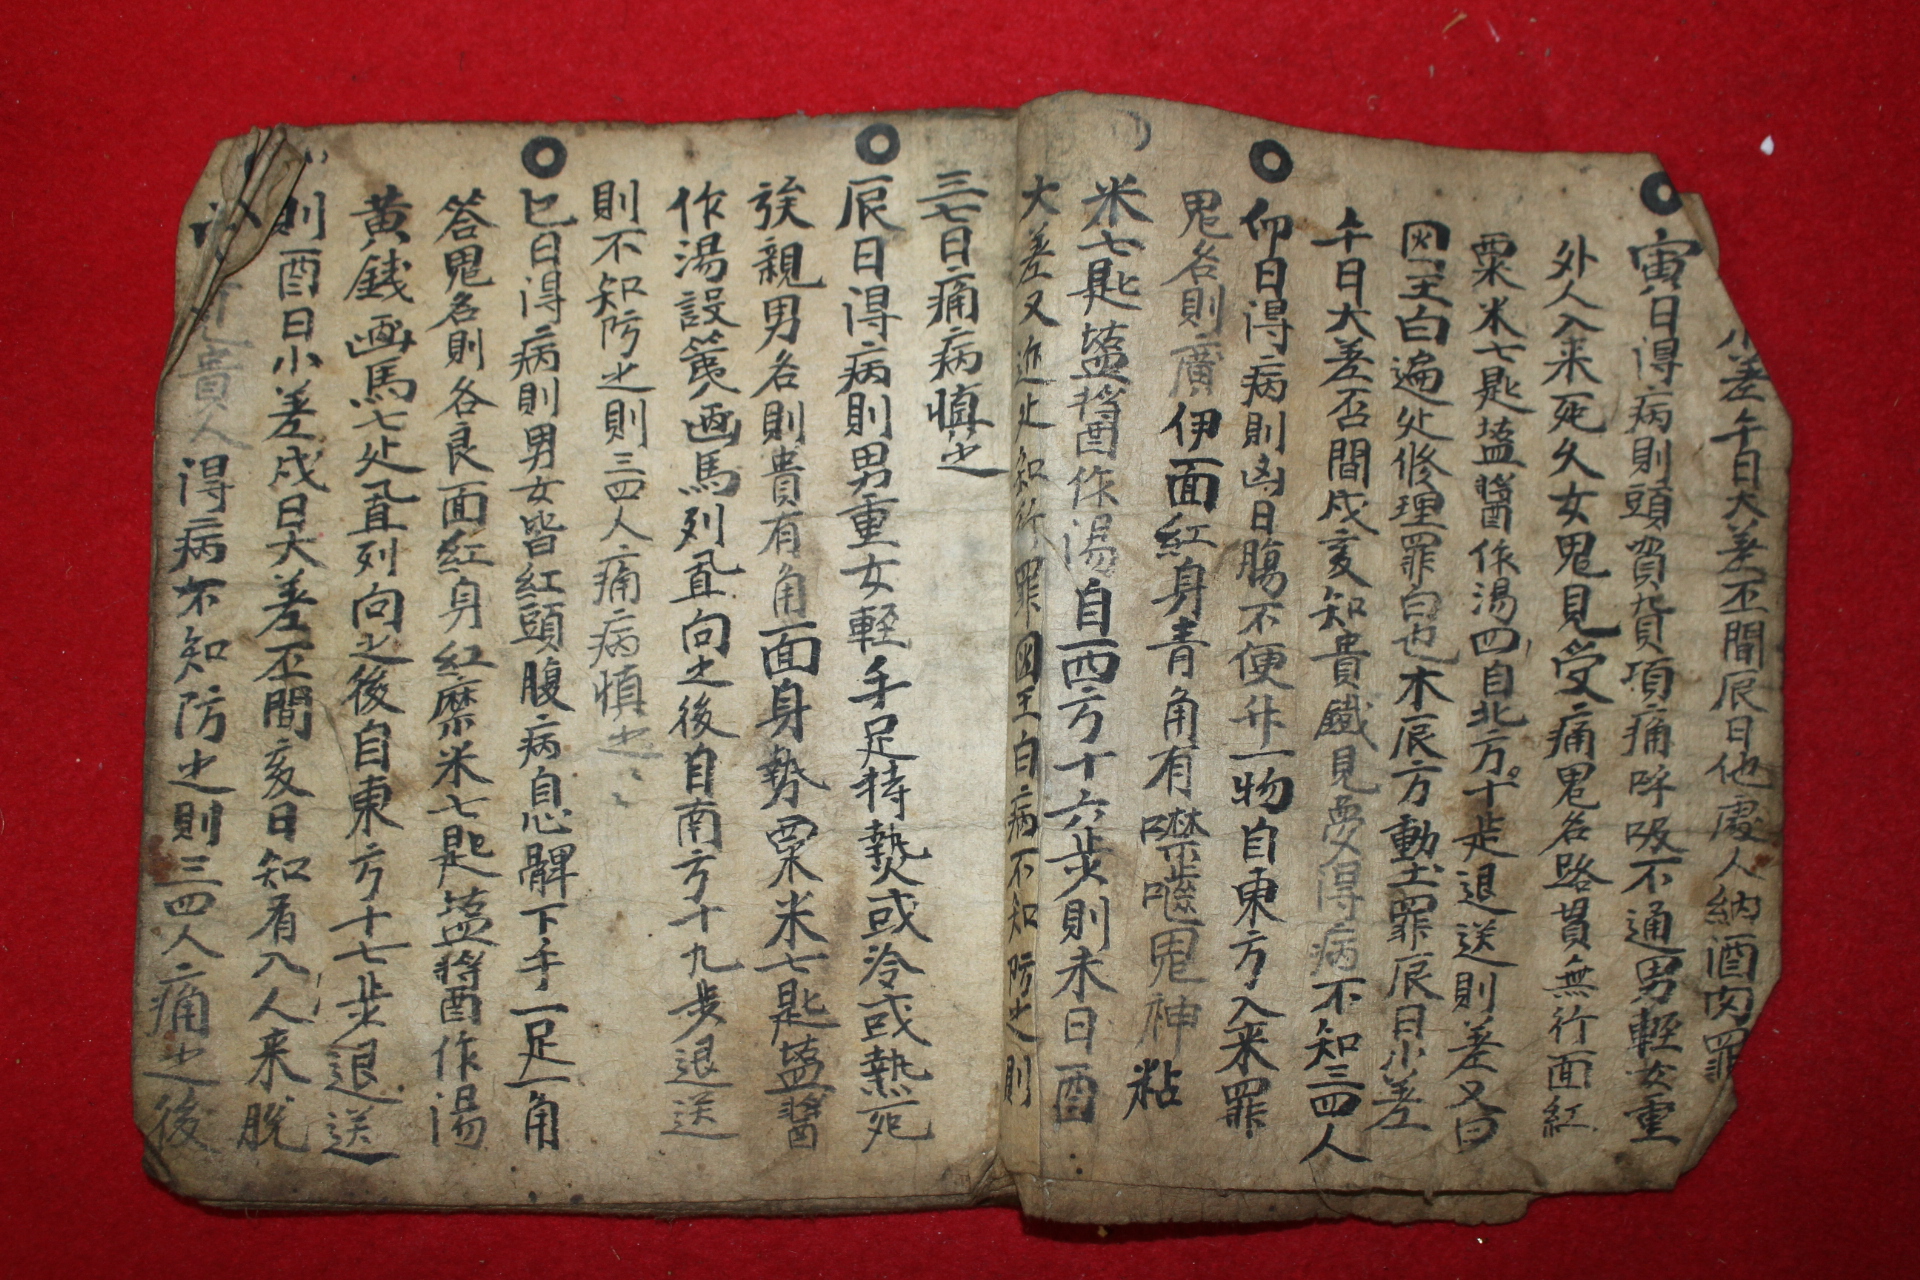 小差午日大差丕間辰日他處人納酒肉罪
寅日得病則頭項痛呼吸不通男輕女重
外人入来死久女鬼見受痛鬼名路貫無行面紅
粟米七匙塩醬作湯四自北方十步退送則差又曰
国王白遍处修理罪白也木辰方動土罪辰日小差
午日大差否間戌亥知貴鐵見夢得病不知三四人
卯日得病則凶日腸不便升一物自東方入来罪
鬼名則廣伊面紅身青角有噤噬鬼神粘
米七匙塩醬作湯自西方十六步則未日酉
大差又近处知行罪国王白病不知防之則
三七日痛病慎之
辰日得病則男重女輕手足特熱或冷或熱死
族親男名則貴有角面身勢粟米七匙塩醬
作湯設奠画馬列直向之後自南方十九步退送
則不知防之則三四人痛病慎之
巳日得病則男女皆紅頭腹病自心髀下手一足一角
答鬼名則各良面紅身紅縻米七匙塩醬作湯
黄銭画馬七处直列向之後自東方十七步退送
則酉日小差戌日大差丕間亥日知有入人来脫
得病不知防之則三四人痛之後